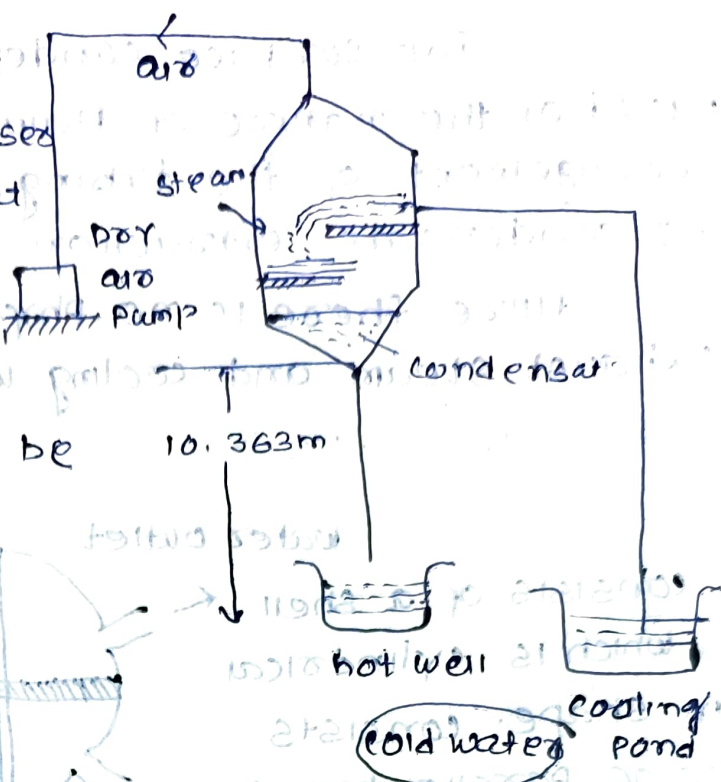 air
ser
t
steam
Dry
air
Pump
condensat
be
10.363m
hot well
cooling
pond
cold water